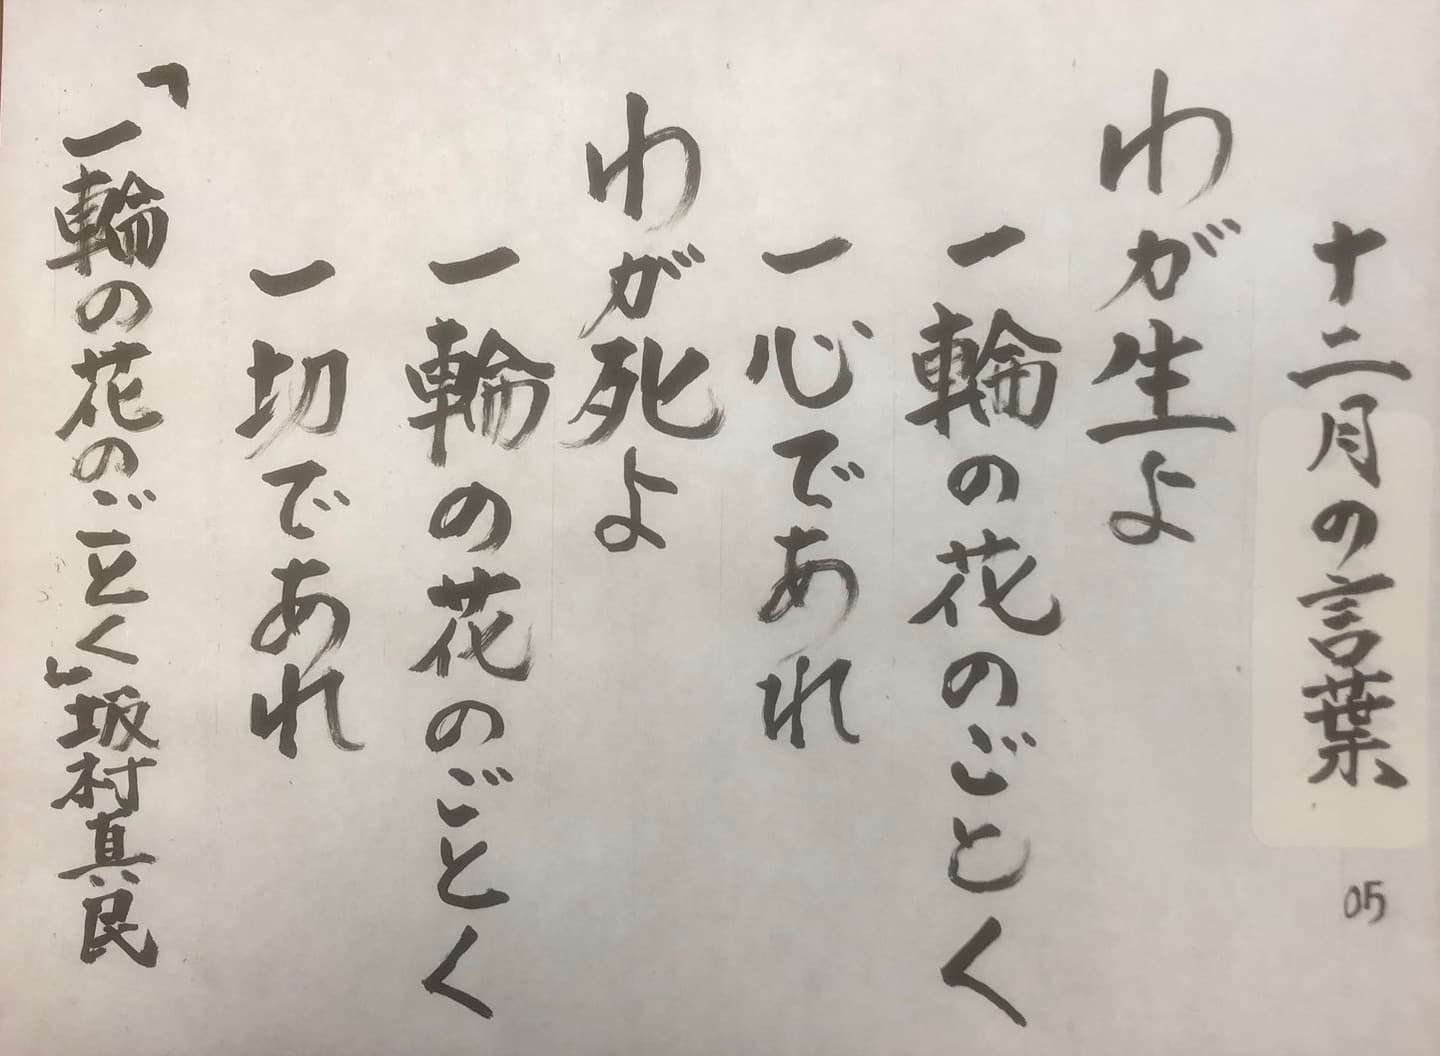 十二月の言葉
05
わが生よ
一輪の花のごとく
一心であれ
わが死よ
一輪の花のごとく
一切であれ
「一輪の花のごとく」坂村真民